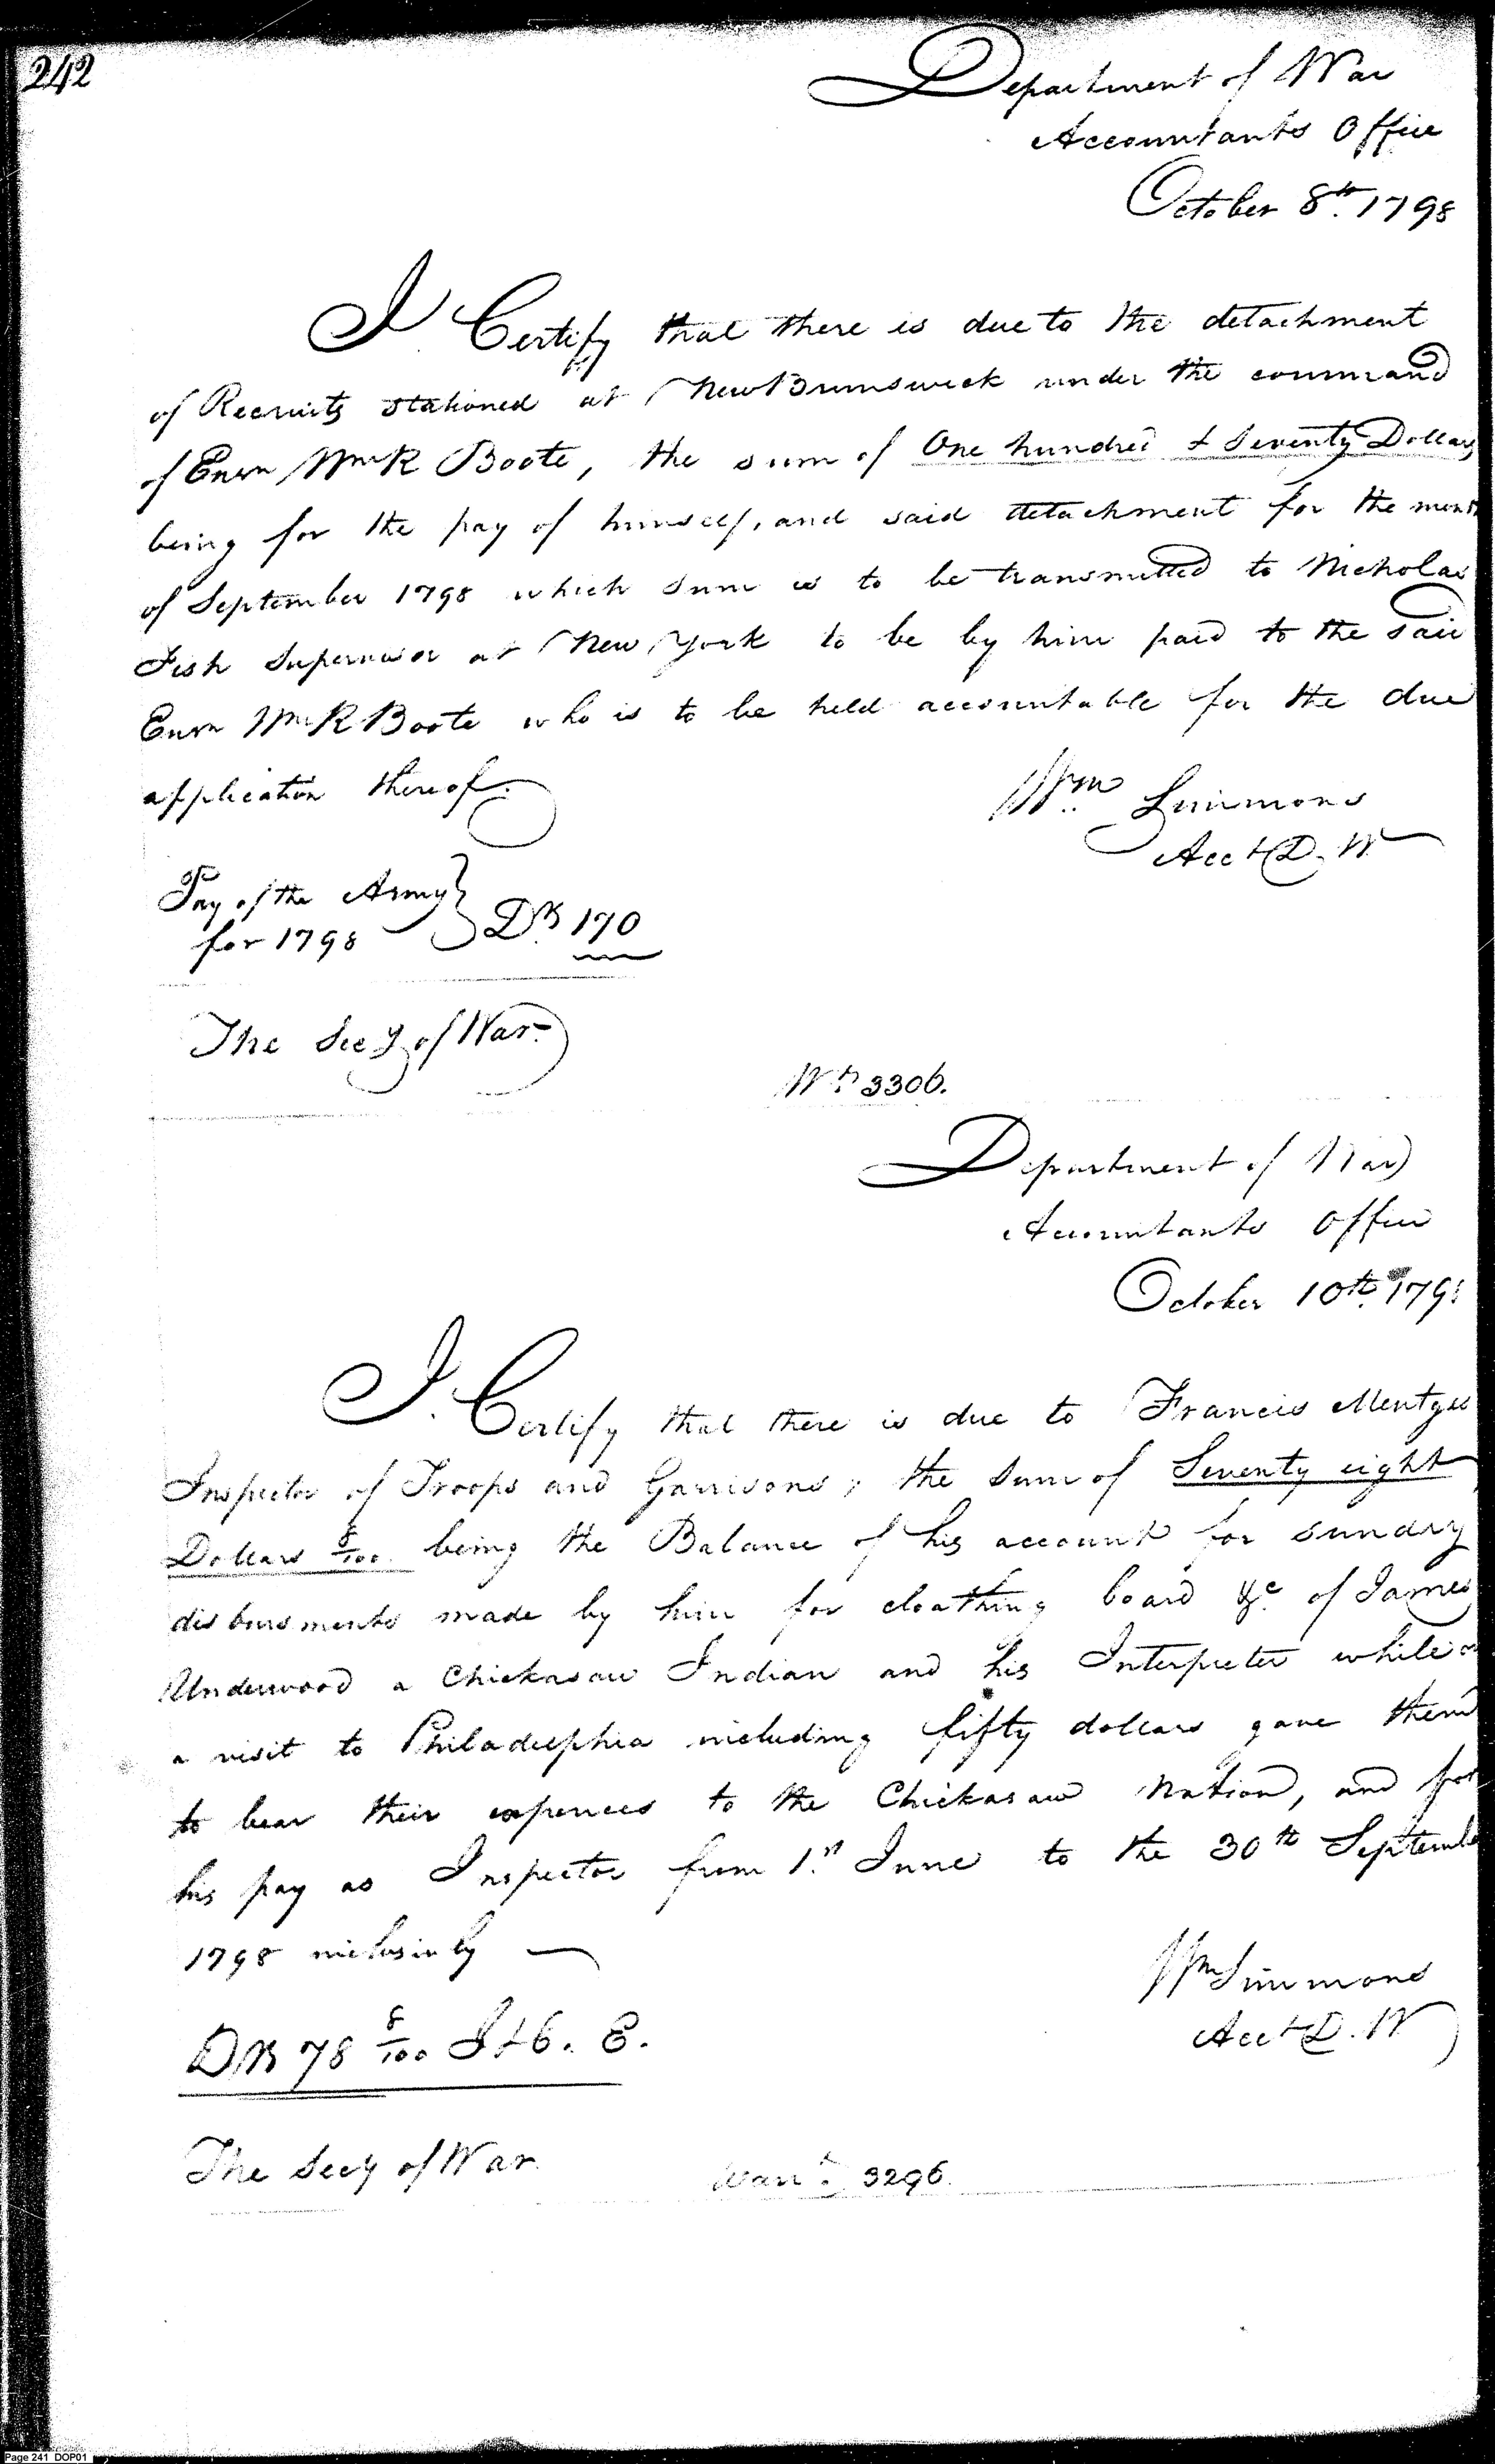 242
Department of War
Accountants Office
October 8th. 1798
I Certify that there is due to the detachment
of Recruits stationed at New Brunswick under the command
of Ensn Wm R Boote, the sum of One hundred & Seventy Dollars
being for the pay of himself, and said detachment for the month
of September 1798 which sum is to be transmitted to Nicholas
Fish Supervisor at New York to be by him paid to the said
Ensn Wm R Boote who is to be held accountable for the due
application thereof.
Wm Simmons
Acct D. W
Pay of the Army
for 1798 } Drs 170
The Secy of War
Wt. 3306.
Department of War
Accountants Office
October 10th. 179
I Certify that there is due to Francis Mentges
Inspector of Troops and Garrisons, the sum of Seventy eight
Dollars 8/100 being the Balance of his account for sundry
disbursments made by him for cloathing board &c of James
Underwood a Chickasaw Indian and his Interpreter while on
a visit to Philadelphia including fifty dollars gave them
to bear their expences to the Chickasaw Nation, and for
his pay as Inspector from 1st June to the 30th September
1798 inclusively
Wm Simmons
Acct D. W
Drs 78 8/100 I & 6. E.
The Secy of War.
Warrt. 3296.
Page 241 DOP01